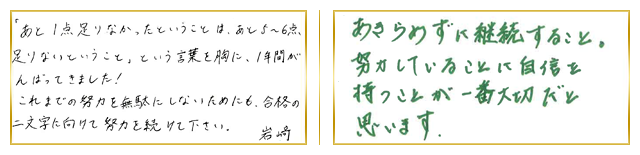 「あと1点足りなかったということは、あと5～6点、
足りないということ」という言葉を胸に、1年間が
んばってきました!
これまでの努力を無駄にしないためにも、合格の
二文字に向けて努力を続けて下さい。
岩崎
あきらめずに継続すること。
努力していることに自信を
持つことが一番大切だと
思います.